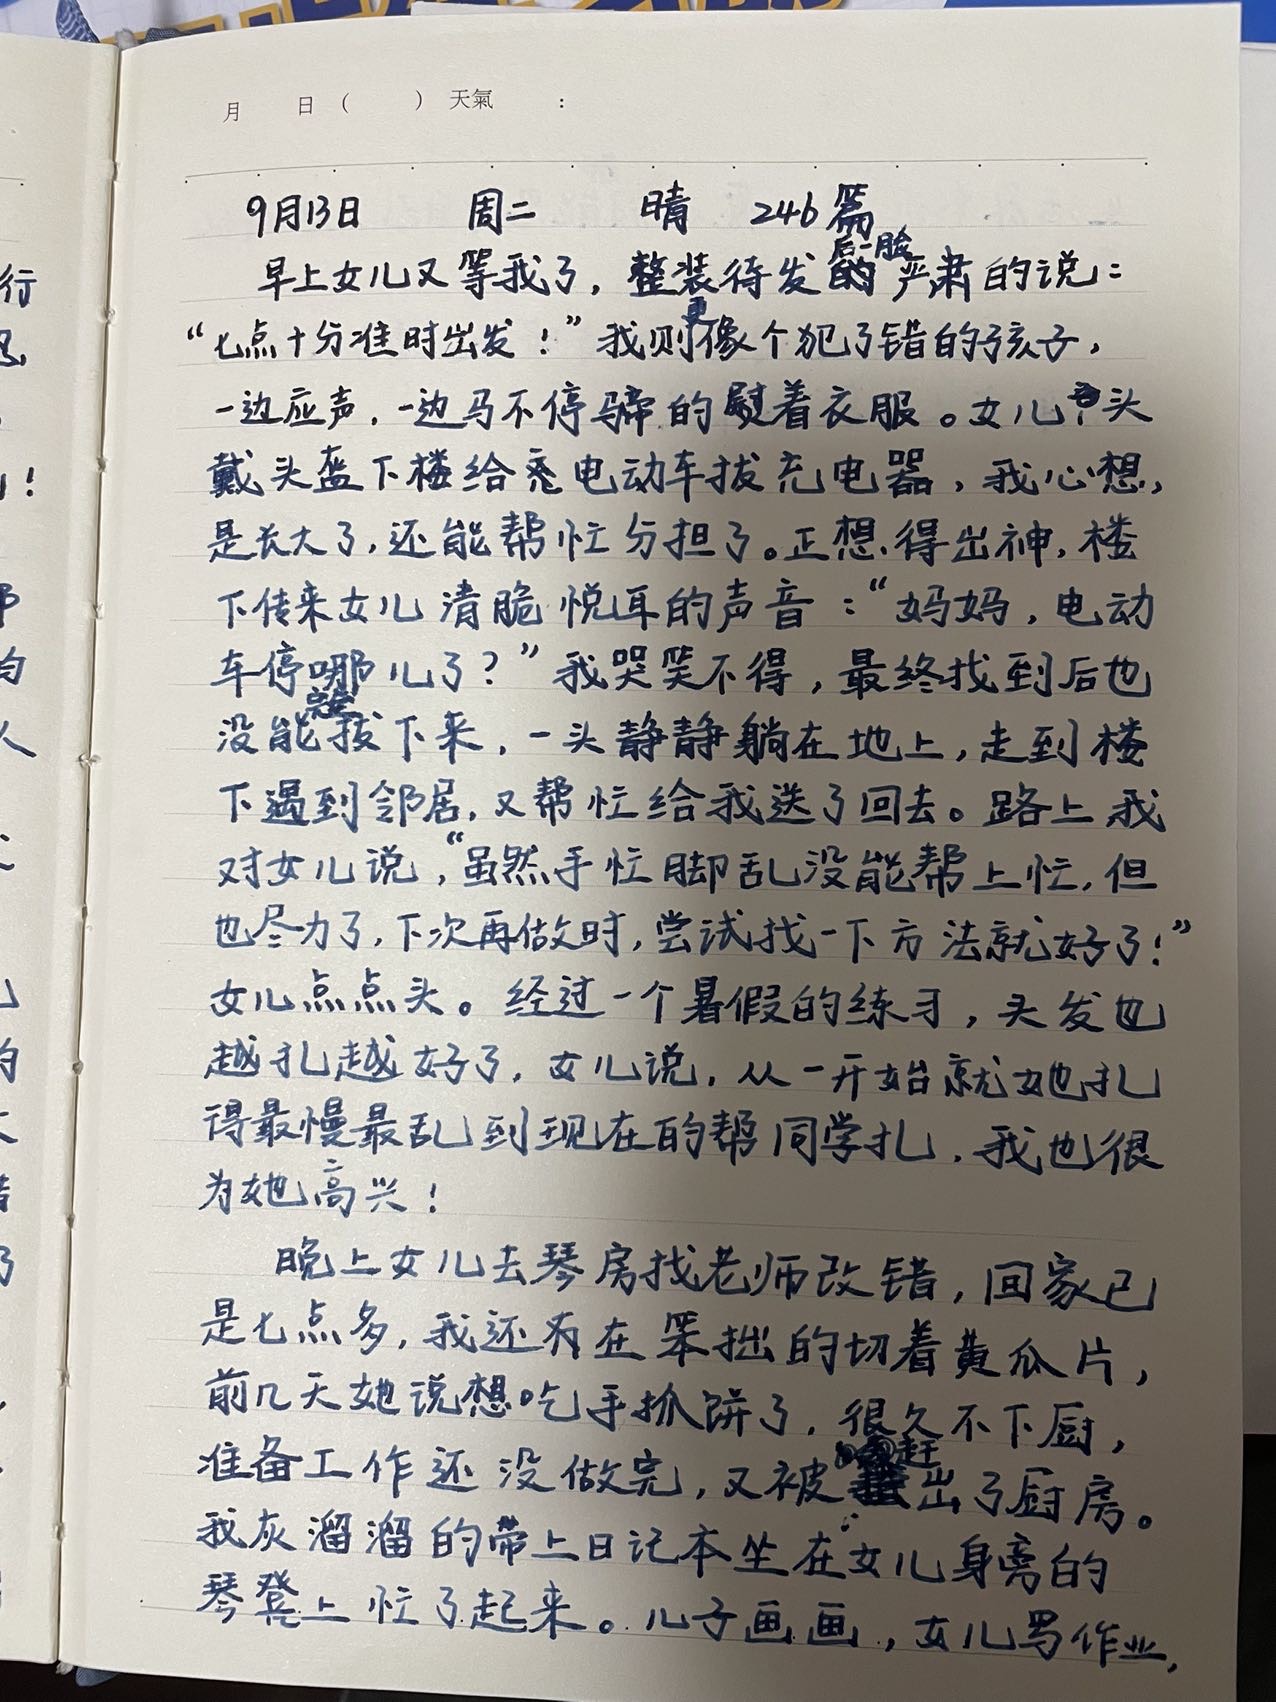 月 日( ) 天氣 :
9月13日 周二 晴 246篇
早上女儿又等我了，整装待发后一脸严肃的说：
“七点十分准时出发！”我则更像个犯了错的孩子，
一边应声，一边马不停蹄的熨着衣服。女儿头
戴头盔下楼给电动车拔充电器，我心想，
是长大了，还能帮忙分担了。正想得出神，楼
下传来女儿清脆悦耳的声音：“妈妈，电动
车停哪儿了？”我哭笑不得，最终找到后也
没能完全拔下来，一头静静躺在地上，走到楼
下遇到邻居，又帮忙给我送了回去。路上我
对女儿说，“虽然手忙脚乱没能帮上忙，但
也尽力了，下次再做时，尝试找一下方法就好了！”
女儿点点头。经过一个暑假的练习，头发也
越扎越好了，女儿说，从一开始就她扎
得最慢最乱到现在的帮同学扎，我也很
为她高兴！
晚上女儿去琴房找老师改错，回家已
是七点多，我还在笨拙的切着黄瓜片，
前几天她说想吃手抓饼了，很久不下厨，
准备工作还没做完，又被赶出了厨房。
我灰溜溜的带上日记本坐在女儿身旁的
琴登上忙了起来。儿子画画，女儿写作业，
行
!
的
人